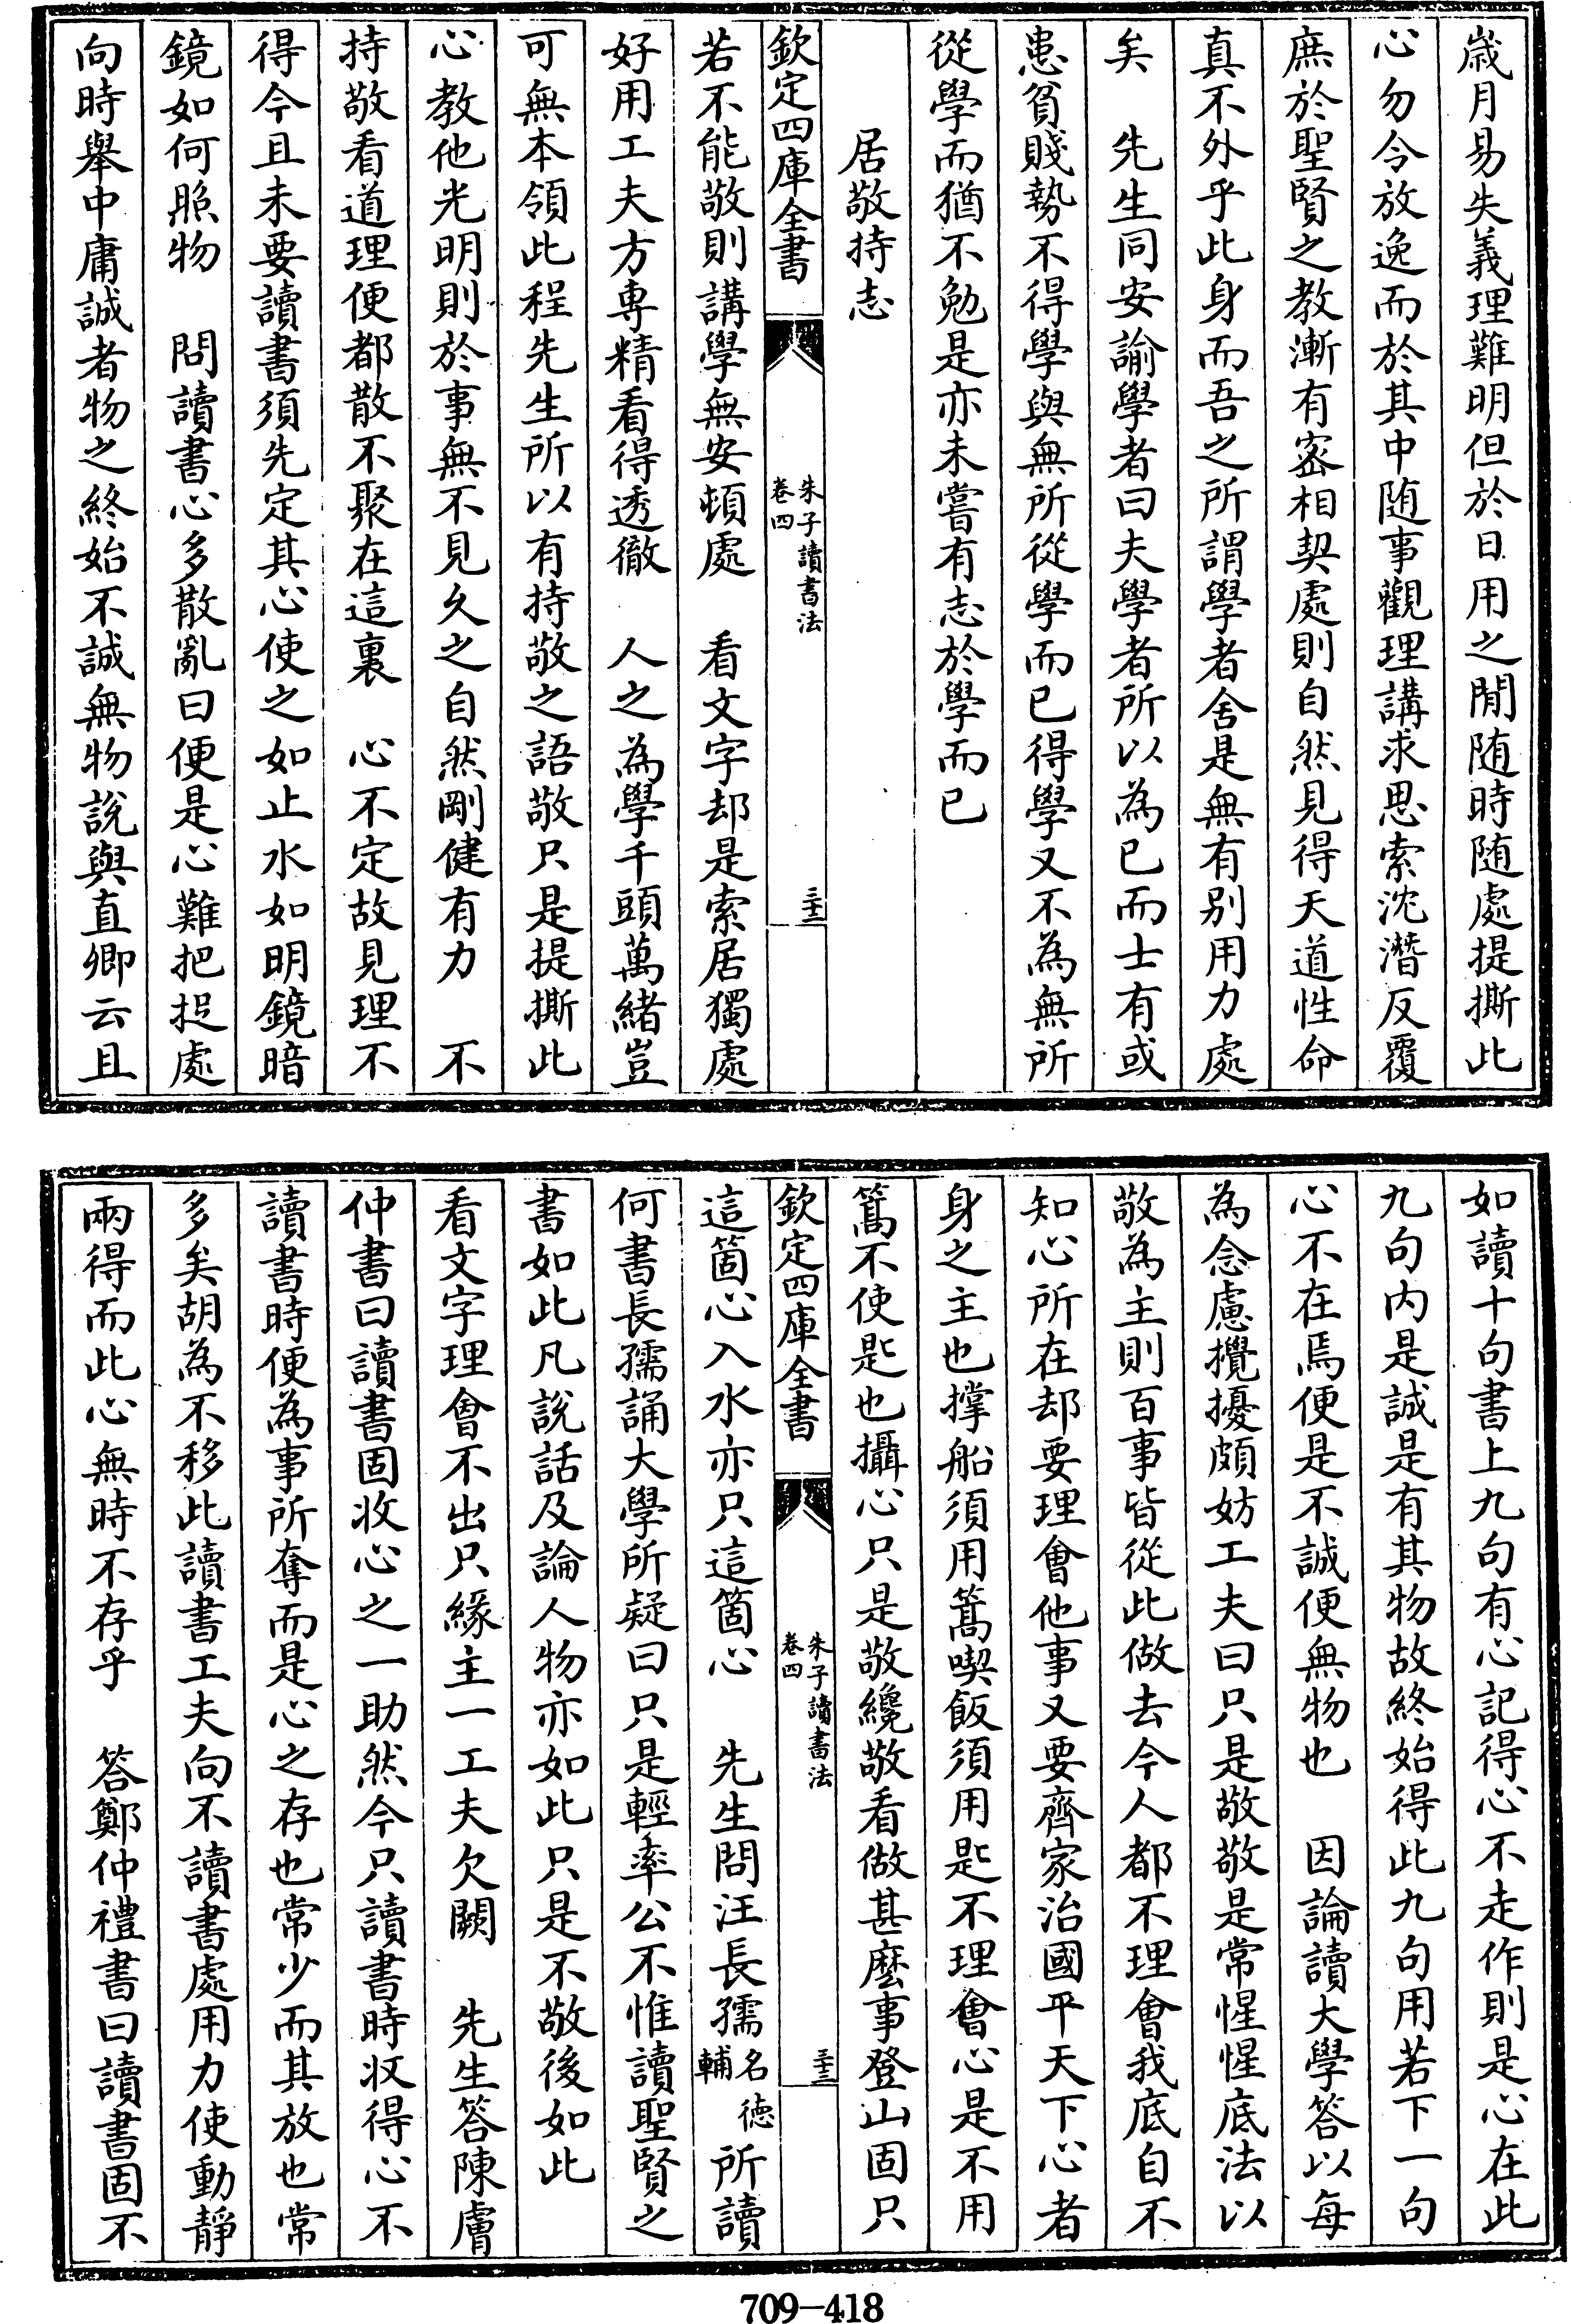 歳月易失義理難明但於日用之閒随時随處提撕此
心勿令放逸而於其中随事觀理講求思索沈潛反覆
庶於聖賢之教漸有宻相契處則自然見得天道性命
真不外乎此身而吾之所謂學者舍是無有别用力處
矣　先生同安諭學者曰夫學者所以為已而士有或
患貧賤勢不得學與無所從學而已得學又不為無所
從學而猶不勉是亦未嘗有志於學而已
居敬持志
欽定四庫全書
朱子讀書法
卷四
三十二
若不能敬則講學無安頓處　看文字却是索居獨處
好用工夫方専精看得透徹　人之為學千頭萬緒豈
可無本領此程先生所以有持敬之語敬只是提撕此
心教他光明則於事無不見久之自然剛健有力　不
持敬看道理便都散不聚在這裏　心不定故見理不
得今且未要讀書須先定其心使之如止水如明鏡暗
鏡如何照物　問讀書心多散亂曰便是心難把捉處
向時舉中庸誠者物之終始不誠無物說與直卿云且
如讀十句書上九句有心記得心不走作則是心在此
九句内是誠是有其物故終始得此九句用若下一句
心不在焉便是不誠便無物也　因論讀大學答以每
為念慮攪擾頗妨工夫曰只是敬敬是常惺惺底法以
敬為主則百事皆從此做去今人都不理會我底自不
知心所在却要理會他事又要齊家治國平天下心者
身之主也撑船須用篙喫飯須用匙不理會心是不用
篙不使匙也攝心只是敬纔敬看做甚麽事登山固只
欽定四庫全書
朱子讀書法
卷四
三十三
這箇心入水亦只這箇心　先生問汪長孺名德輔所讀
何書長孺誦大學所疑曰只是輕率公不惟讀聖賢之
書如此凡說話及論人物亦如此只是不敬後如此
看文字理會不出只緣主一工夫欠闕　先生答陳膚
仲書曰讀書固收心之一助然今只讀書時收得心不
讀書時便為事所奪而是心之存也常少而其放也常
多矣胡為不移此讀書工夫向不讀書處用力使動靜
兩得而此心無時不存乎　答鄭仲禮書曰讀書固不
709-418